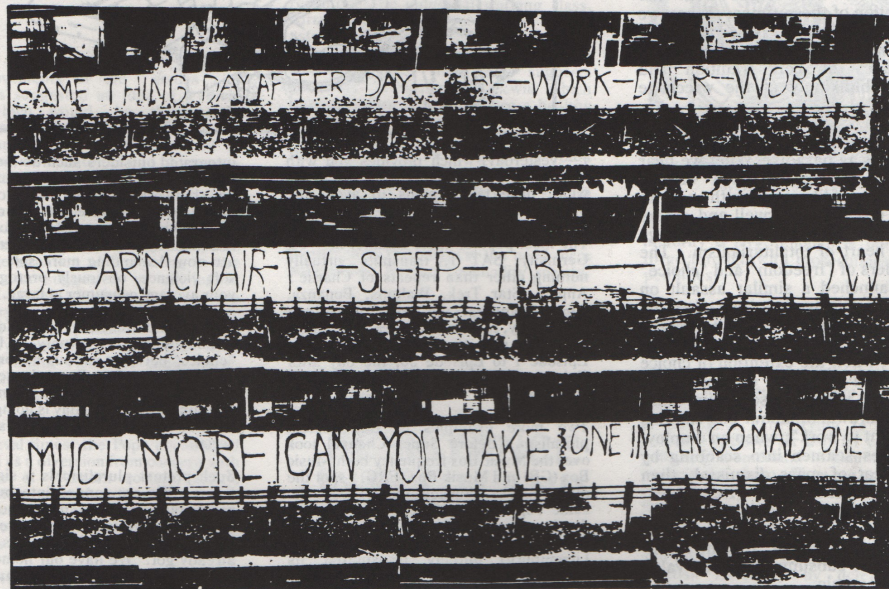 SAME THING DAY AFTER DAY— BE—WORK—DINER—WORK—
UBE—ARMCHAIR—T.V. SLEEP—TUBE—WORK—HOW
MUCH MORE CAN YOU TAKE ONE IN TEN GO MAD—ONE